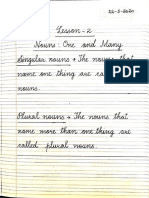 22-5-2020
Lesson-2
Nouns: One and Many
Singular nouns → The nouns that
name one thing are ca
nouns.
Plural nouns → The nouns that
name more than one thing are
called plural nouns.